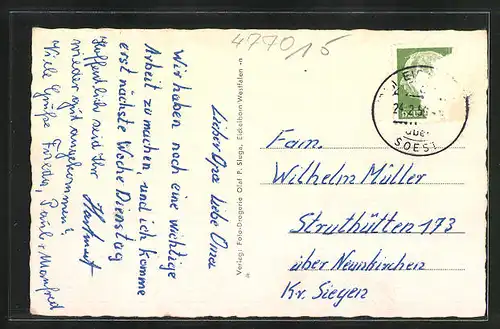 47701/5
Lieber Opa Liebe Oma
Wir haben noch eine wichtige
Arbeit zu machen, und ich komme
erst nächste Woche Dienstag
Hoffentlich seid Ihr Hartmut
wieder gut angekommen
Viele Grüße Frieda, Paul + Manfred
Verlag: Foto-Drogerie Olaf P. Stega, Eickelborn-Westfalen
24.2.
über
SOEST
Fam.
Wilhelm Müller
Struthütten 173
über Neunkirchen
Kr. Siegen